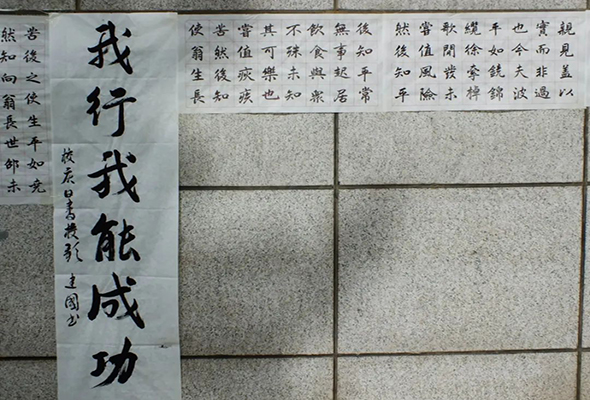 親見蓋以
實而非過
也今夫波
平如鏡錦
纜徐牽棹
歌閒發未
嘗值風險
然後知平
後知平常
無事起居
飲食與衆
不殊未知
其可樂也
嘗值疾疢
苦然後知
使翁生長
我行我能成功
校庆日書校歌 建國书
苦後之使生平如堯
然知向翁長世邵未